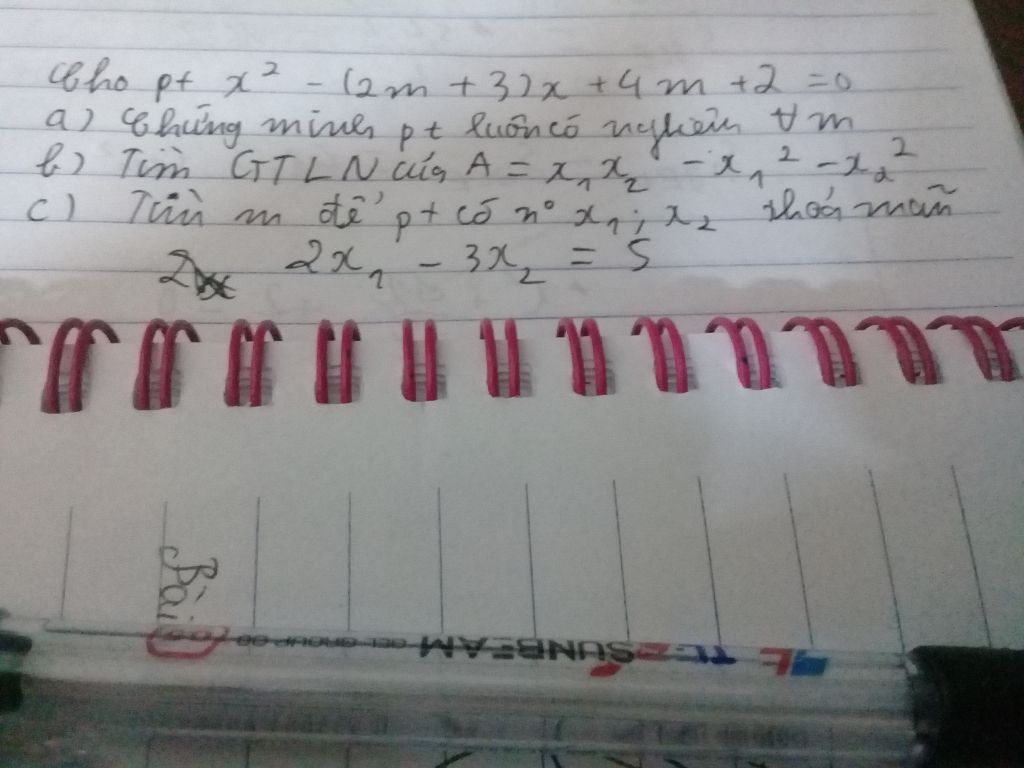 Cho pt x² - (2m + 3)x + 4m + 2 = 0
a) Chứng minh pt luôn có nghiệm ∀m
b) Tìm GTLN của A = x₁x₂ - x₁² - x₂²
c) Tìm m để pt có n° x₁; x₂ thoả mãn
2x₁ - 3x₂ = 5
Bài
SUNBEAM